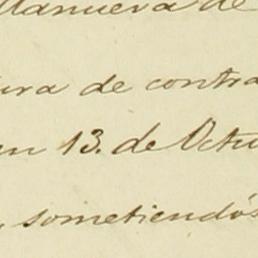 llanueva de
ura de contra
en 13. de Octu
, sometiendós